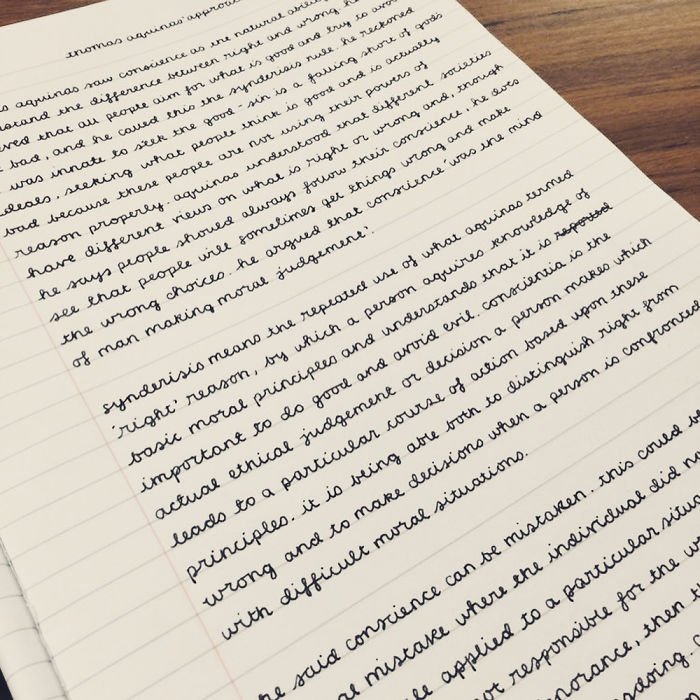 thomas aquinas' approa
aquinas saw conscience as the natural
stand the difference between right and wrong. he
ved that all people aim for what is good and try to avoi
bad, and he called this the synderisis rule. he reckoned
was innate to seek the good - sin is a falling short of gods
ideals, seeking what people think is good and is actually
bad because these people are not using their powers of
reason properly. aquinas understood that different societies
have different views on what is right or wrong and, though
he says people should always follow their conscience, he does
see that people will sometimes get things wrong and make
the wrong choices. he argued that conscience 'was the mind
of man making moral judgement'.
synderisis means the repeated use of what aquinas termed
'right' reason, by which a person aquires knowledge of
basic moral principles and understands that it is reported
important to do good and avoid evil. conscientia is the
actual ethical judgement or decision a person makes which
leads to a particular course of action based upon these
principles. it is being able both to distinguish right from
wrong and to make decisions when a person is confronted
with difficult moral situations.
he said conscience can be mistaken. this could b
al mistake where the individual did n
le applied to a particular situa
not responsible for the w
norance, then t
doing.